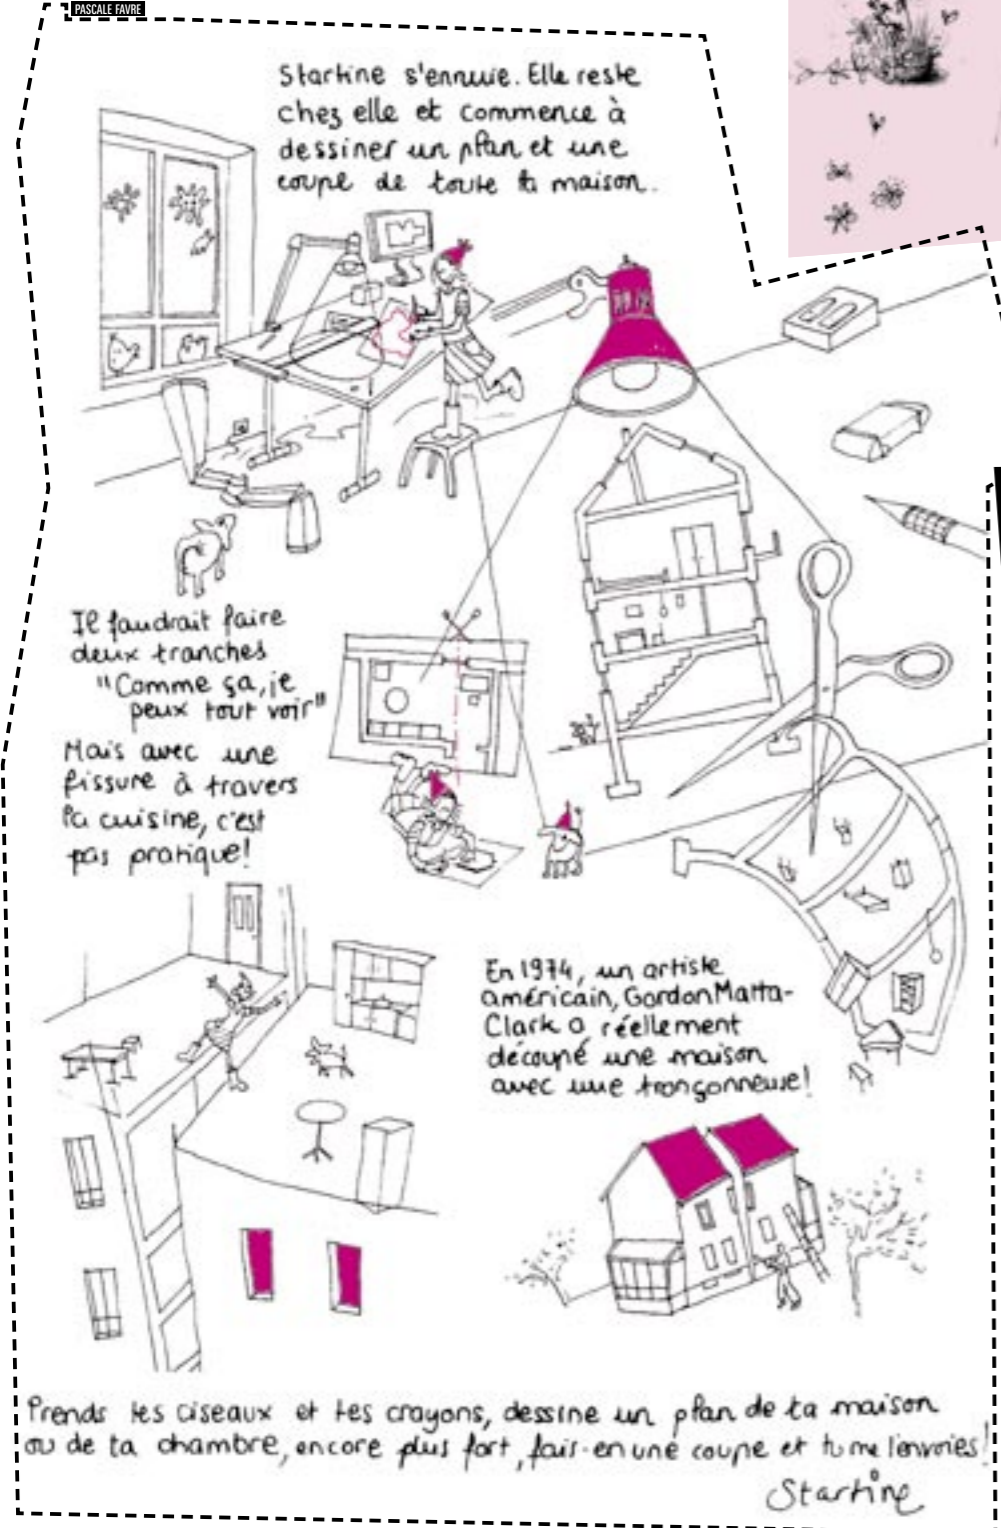 PASCALE FAVRE
Startine s'ennuie. Elle reste
chez elle et commence à
dessiner un plan et une
coupe de toute la maison.
Il faudrait faire
deux tranches
"Comme ça, je
peux tout voir"
Mais avec une
fissure à travers
la cuisine, c'est
pas pratique!
En 1974, un artiste
américain, Gordon Matta-
Clark a réellement
découpé une maison
avec une tronçonneuse!
Prends tes ciseaux et tes crayons, dessine un plan de ta maison
ou de ta chambre, encore plus fort, fais-en une coupe et tu me l'envoies!
Startine